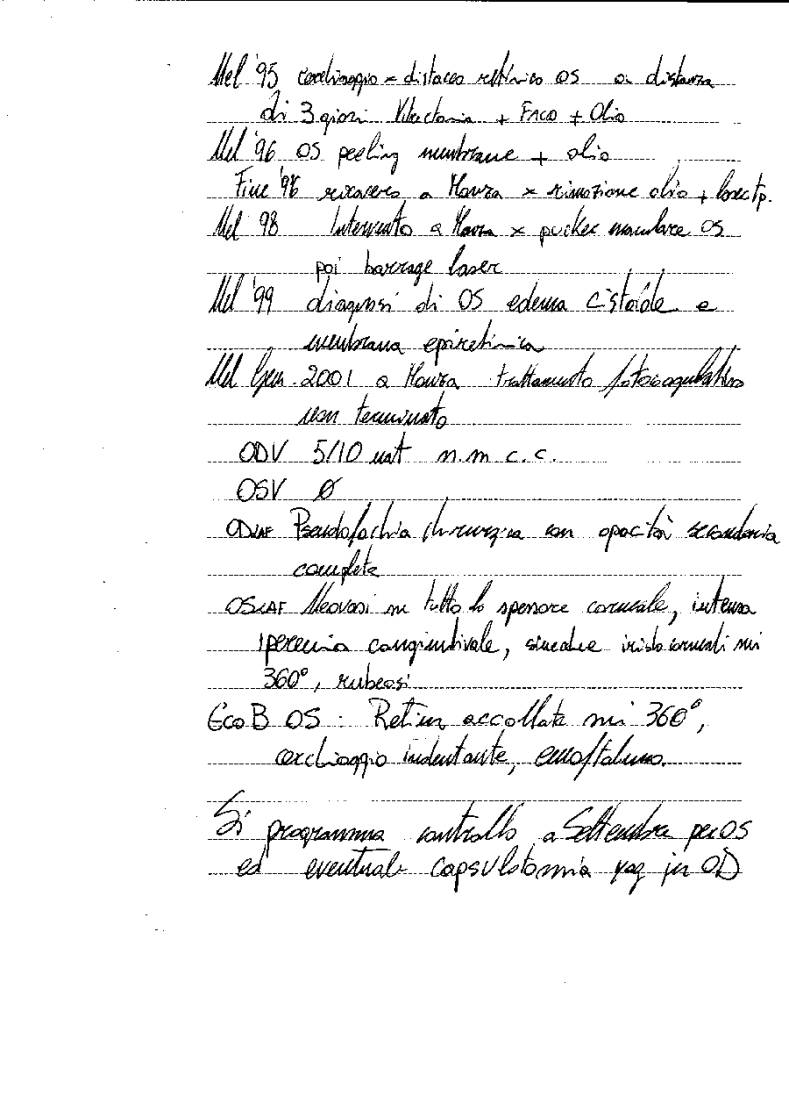 Nel '95 cerchiaggio x distacco retinico OS a distanza
di 3 giorni Vitrectomia + FACO + Olio
Nel '96 OS peeling membrane + olio
Fine '96 ricovero a Monza x rimozione olio +
Nel 98 Intervento a Monza x pucker maculare OS
poi barrage laser
Nel '99 diagnosi di OS edema cistoide e
membrana epiretinica
Nel Gen. 2001 a Monza trattamento fotocoagulativo
non terminato
ODV 5/10 nat n.m c.c.
OSV Ø
OD LAF Pseudofachia chirurgica con opacità secondaria
completa
OS LAF Neovasi su tutto lo spessore corneale, intensa
iperemia congiuntivale, sinechie irido corneali su
360°, rubeosi
Eco B OS : Retina accollata su 360°,
cerchiaggio indentante, emoftalmo.
Si programma controllo a Settembre per OS
ed eventuale capsulotomia yag in OD